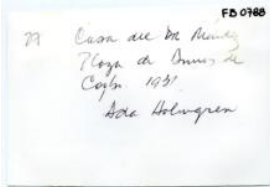 FB 0788
29 Casa del Dr Mendez
Plaza de Armas de
1931
Ada Holmgren